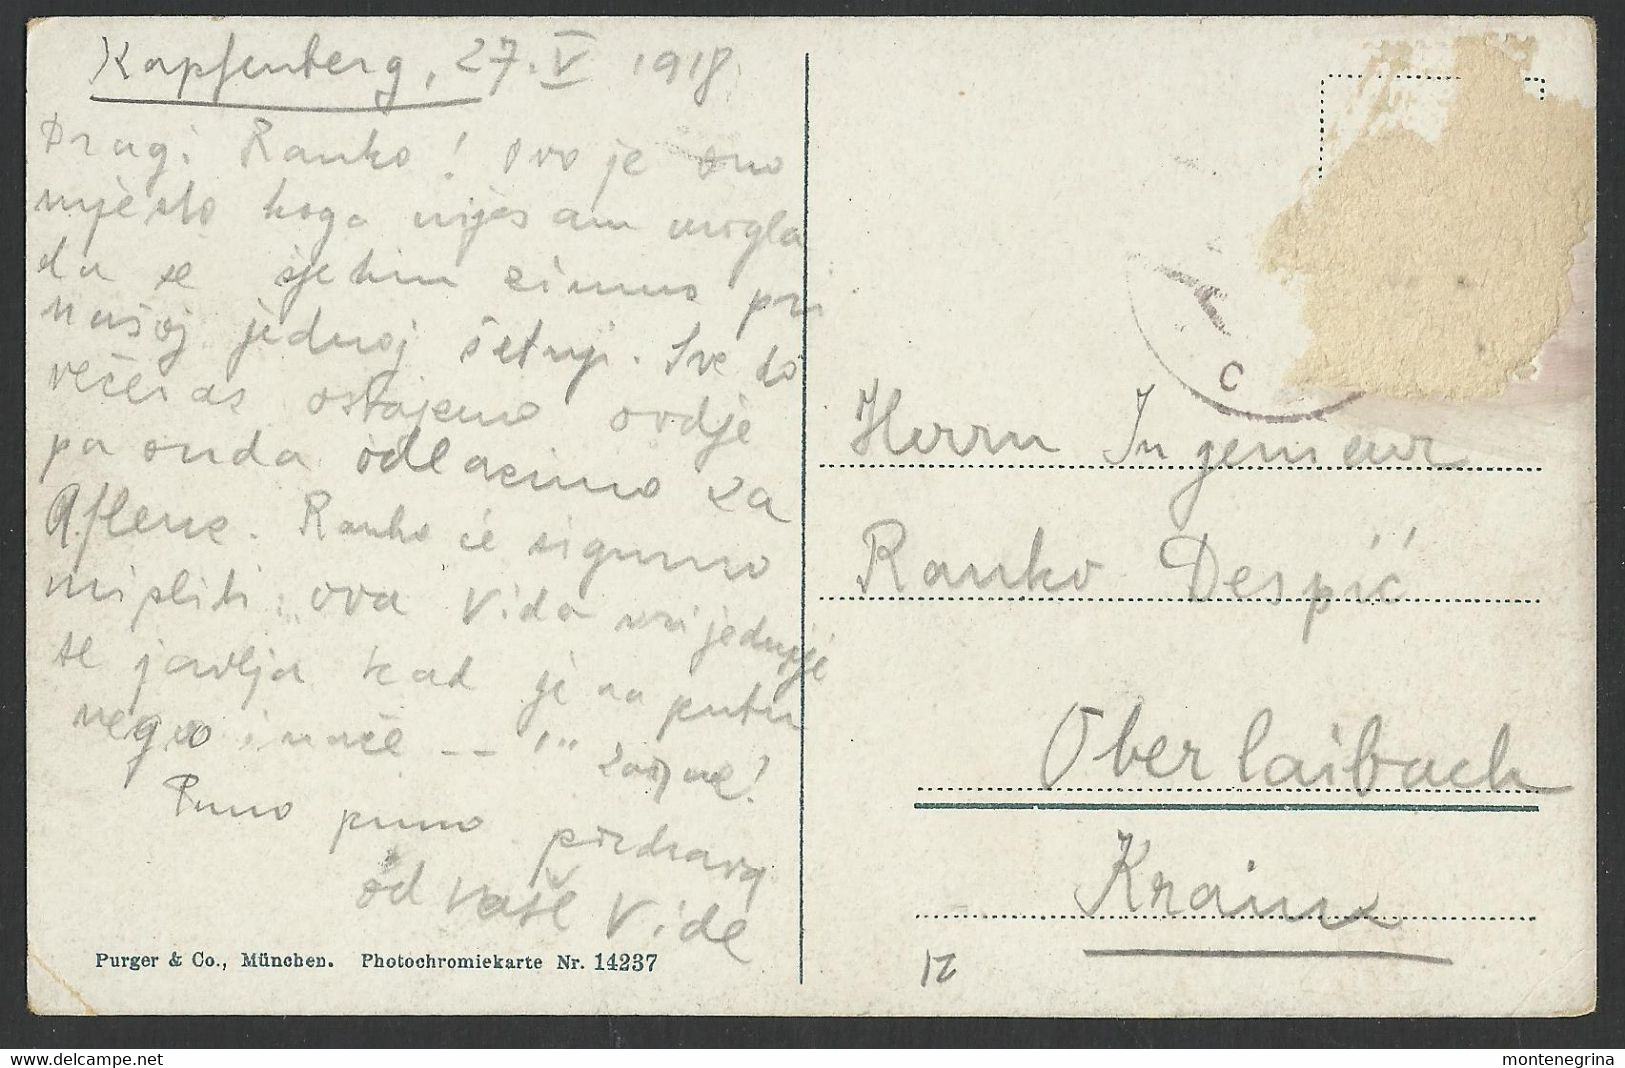 Kapfenberg, 27. V 1918
Dragi Ranko! Ovo je ono
mjesto koga nijesam mogla
da se sjetim zimus pri
našoj jednoj šetnji. Sve do
večeras ostajemo ovdje
pa onda odlazimo za
Aflenz. Ranko će sigurno
misliti: "ova Vida uvijek
se javlja kad je na putu
nego inače -- "
Puno puno pozdrava
od Vaše Vide
Purger & Co., München. Photochromiekarte Nr. 14237
C
Herrn Ingenieur
Ranko Despić
Oberlaibach
Krain
montenegrina